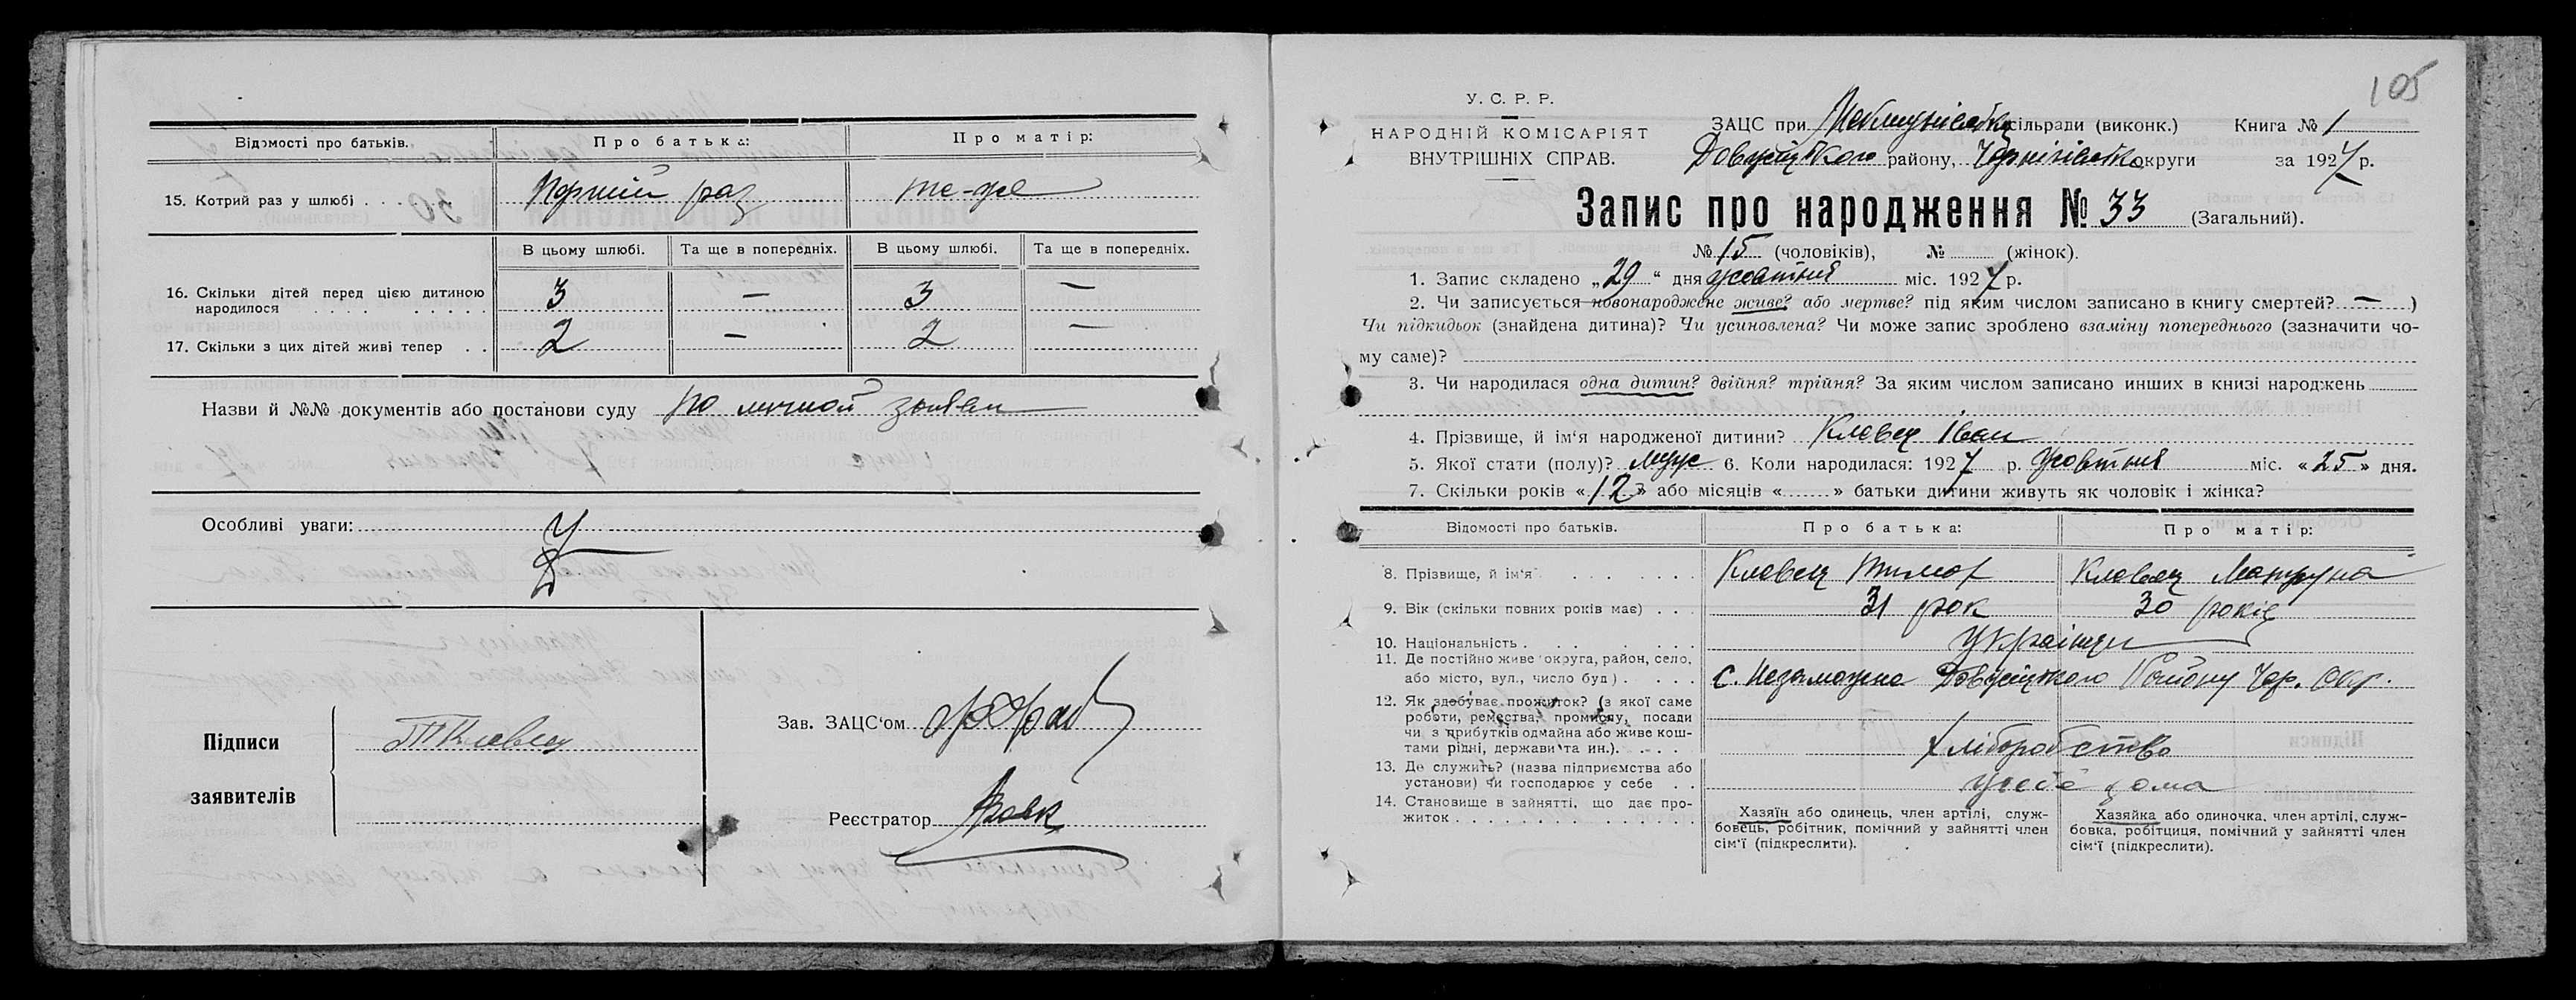 Відомості про батьків. Про батька: Про матір:
15. Котрий раз у шлюбі . . . Перший раз те-же
В цьому шлюбі. Та ще в попередніх. В цьому шлюбі. Та ще в попередніх.
16. Скільки дітей перед цією дитиною
народилося . . . . . . . . . 3 — 3 —
17. Скільки з цих дітей живі тепер . . 2 — 2 —
Назви й №№ документів або постанови суду по личной заяви
Особливі уваги:
Підписи
заявителів
Т Кловец
Зав. ЗАЦС'ом
Реєстратор Вовк
105
У. С. Р. Р.
НАРОДНІЙ КОМІСАРІЯТ
ВНУТРІШНІХ СПРАВ.
ЗАЦС при сільради (виконк.) Книга № 1
району, Чернігівської округи за 1927 р.
Запис про народження № 33 (Загальний).
№ 15 (чоловіків), № (жінок).
1. Запис складено „29“ дня жовтня міс. 1927 р.
2. Чи записується новонароджене живе? або мертве? під яким числом записано в книгу смертей? — )
Чи підкидьок (знайдена дитина)? Чи усиновлена? Чи може запис зроблено взаміну попереднього (зазначити чо-
му саме)?
3. Чи народилася одна дитин? двійня? трійня? За яким числом записано инших в книзі народжень
4. Прізвище, й ім'я народженої дитини? Кловец Іван
5. Якої стати (полу)? муж 6. Коли народилася: 1927 р. жовтня міс. «25» дня.
7. Скільки років «12» або місяців «......» батьки дитини живуть як чоловік і жінка?
Відомості про батьків. Про батька: Про матір:
8. Прізвище, й ім'я . . . . . . . Кловец Тимох Кловец Мотруна
9. Вік (скільки повних років має) . . . 31 рок 30 років
10. Національність . . . . . . . українці
11. Де постійно живе округа, район, село,
або місто, вул., число буд) . . . . с. Незаможне району Чер. Окр.
12. Як здобуває прожиток? (з якої саме
роботи, ремества, промислу, посади
чи з прибутків од майна або живе кош-
тами рідні, держави та ин.). . . . . хліборобство
13. Де служить? (назва підприємства або
установи) чи господарює у себе . . у себе дома
14. Становище в зайнятті, що дає про-
житок . . . . . . . . . . . . . .
Хазяїн або одинець, член артілі, служ-
бовець, робітник, помічний у зайнятті член
сім'ї (підкреслити).
Хазяйка або одиночка, член артілі, служ-
бовка, робітциця, помічний у зайнятті член
сім'ї (підкреслити).